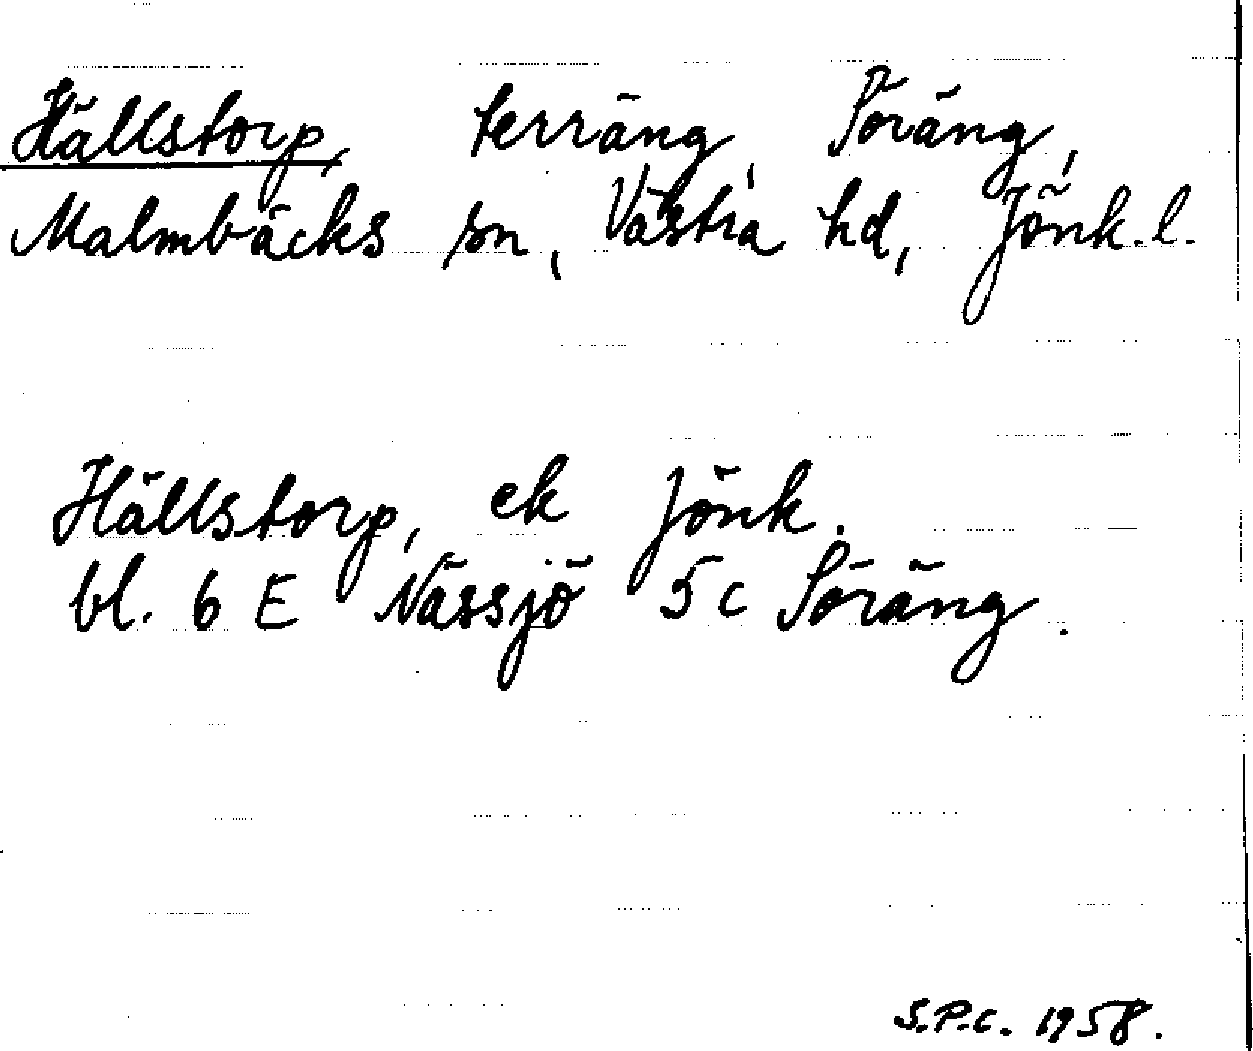 Hällstorp, terräng, Söräng,
Malmbäcks sn, Västra hd, Jönk. l.
Hällstorp, ek Jönk.
bl. 6 E Nässjö 5 c Söräng.
S.P.C. 1958.